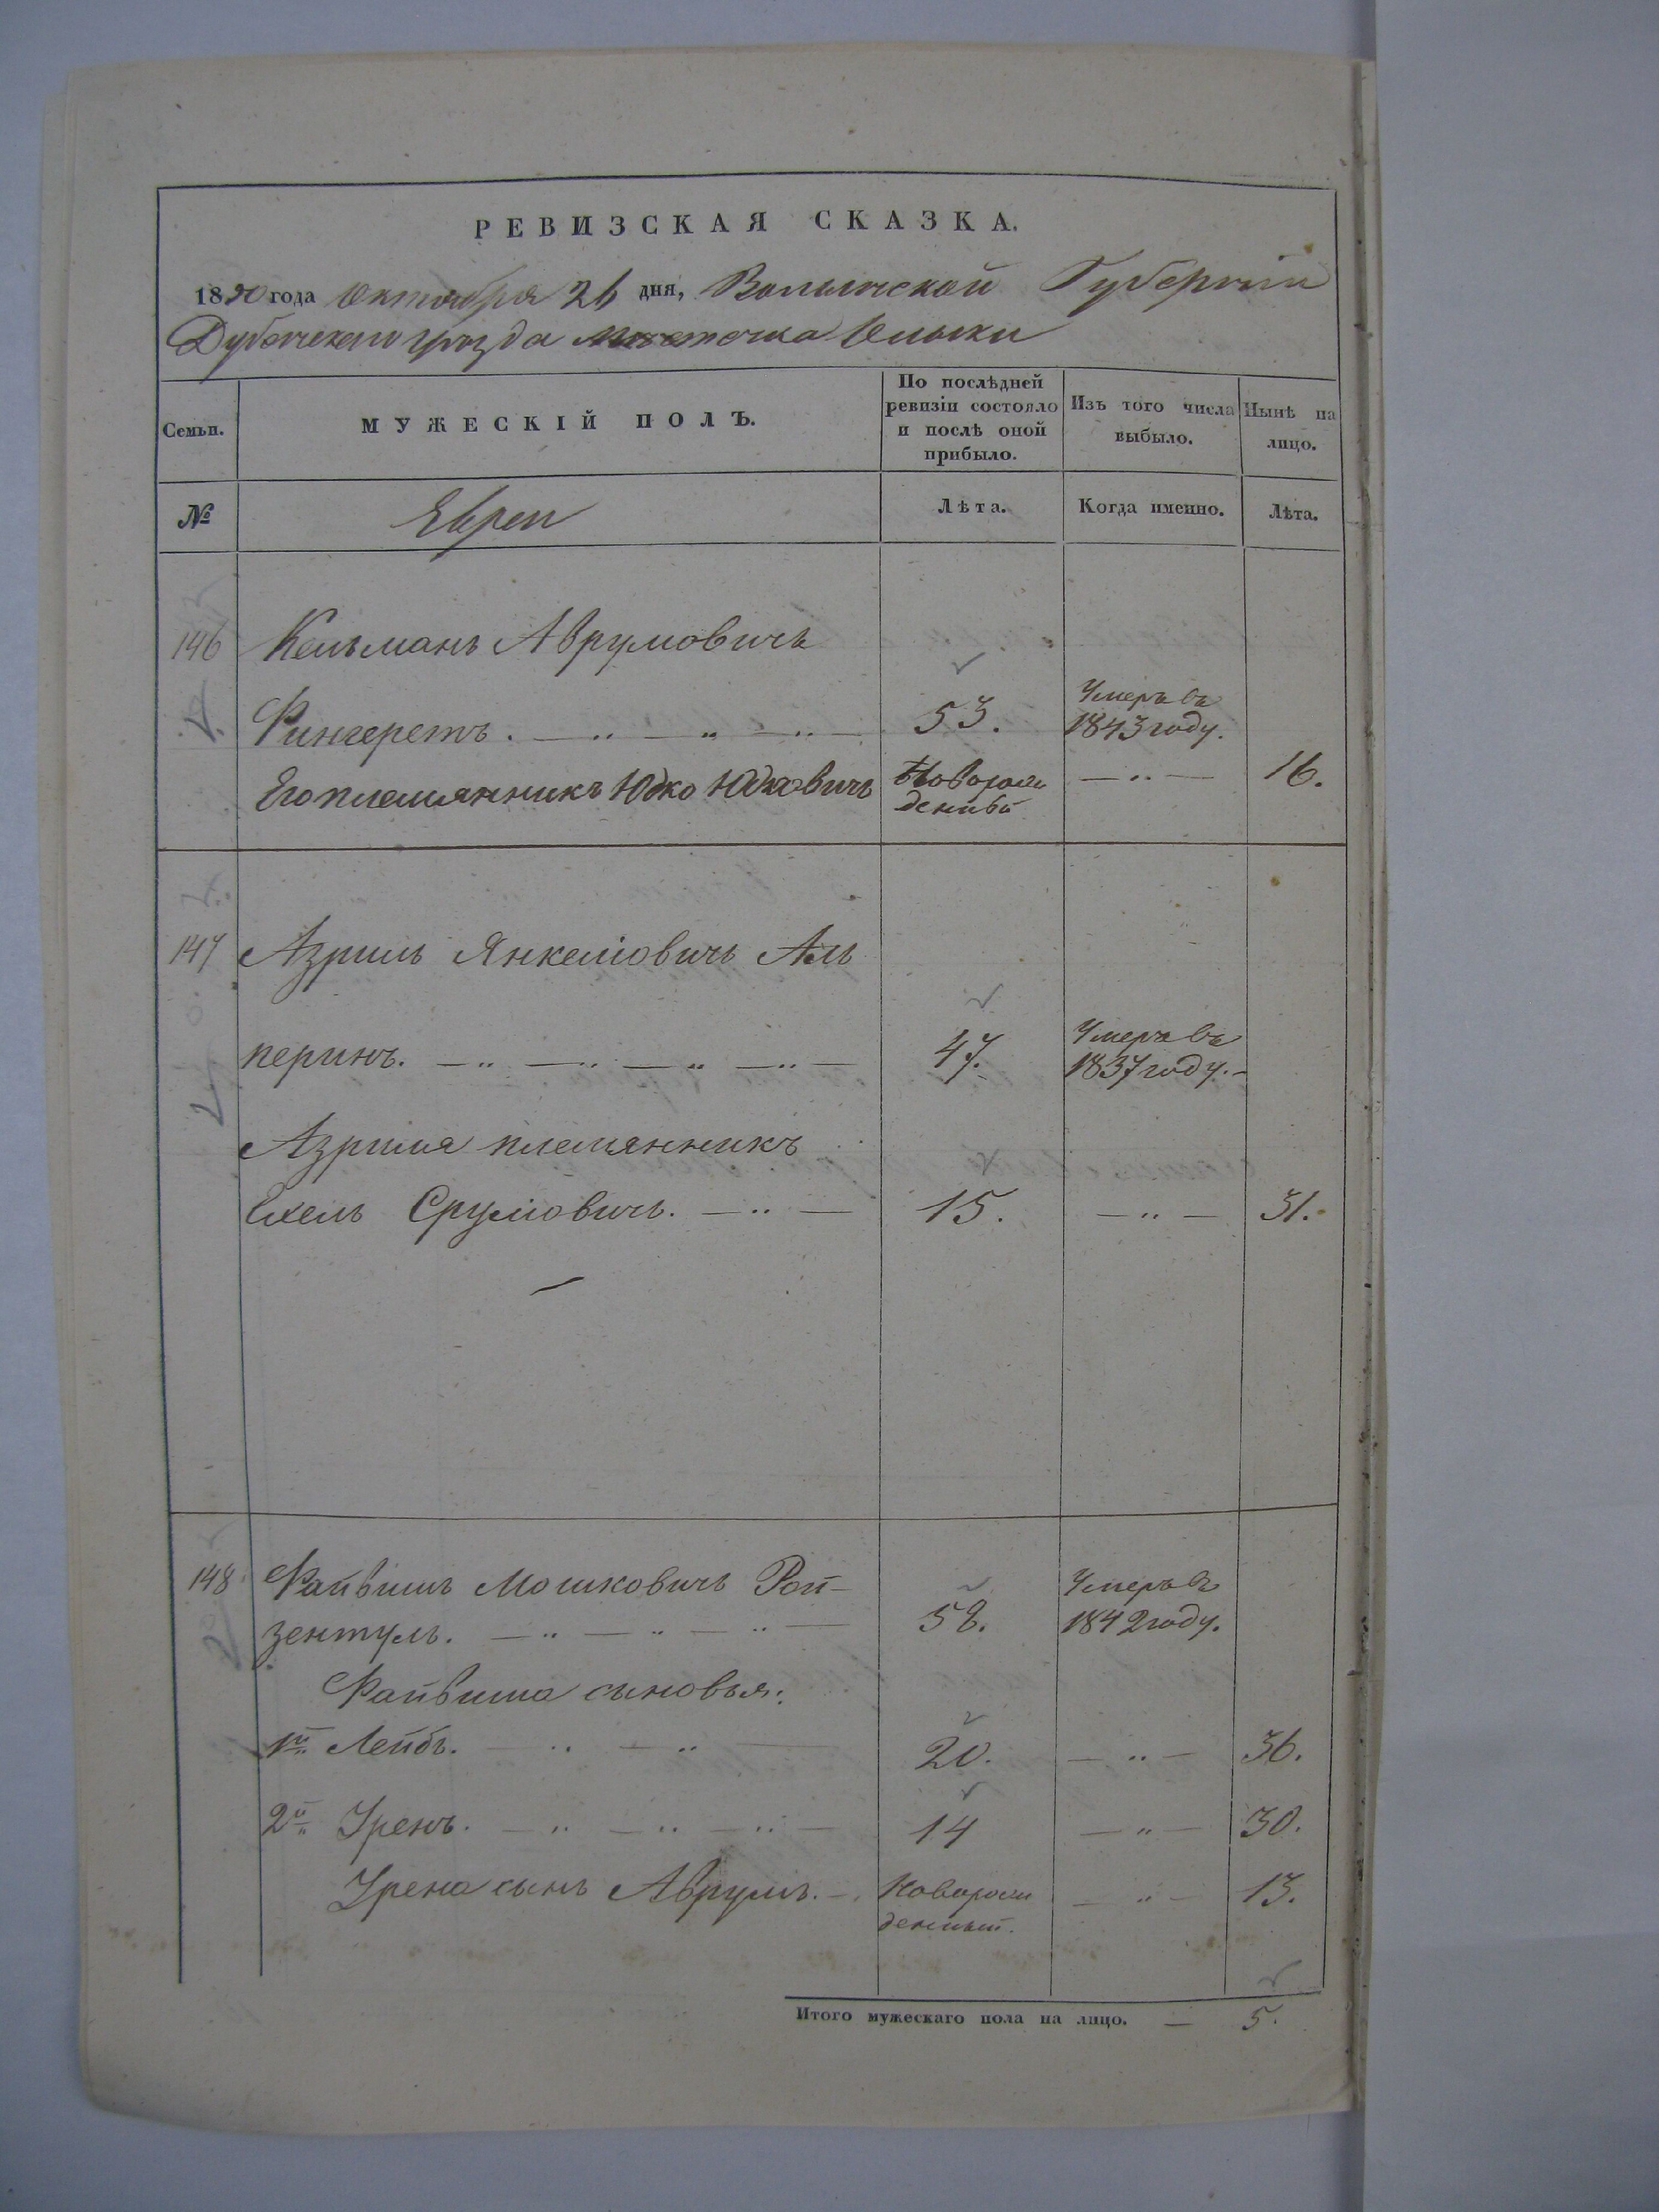 РЕВИЗСКАЯ СКАЗКА.
1850 года Октября 26 дня, Волынской Губернии
Дубенскаго уѣзда местечка Олыки
Семьи.
МУЖЕСКІЙ ПОЛЪ.
По послѣдней ревизіи состояло и послѣ оной прибыло.
Изъ того числа выбыло.
Нынѣ на лицо.
№
Евреи
Лѣта.
Когда именно.
Лѣта.
146 Кельманъ Аврумовичъ
Фингеретъ. 53. Умеръ въ 1843 году.
Его племянникъ Юдко Юдковичъ Новорожденный 16.
147 Азриль Янкелiовичъ Аль
перинъ. 47. Умеръ въ 1837 году.
Азриля племянникъ
Ехель Срулiовичъ. 15. 31.
148 Файвишъ Мошковичъ Рой-
зентуль. 58. Умеръ въ 1842 году.
Файвиша сыновья:
1й Лейбъ. 20. 36.
2й Уренъ. 14 30.
Урена сынъ Аврумъ. Новорожденный. 13.
Итого мужескаго пола на лицо. — 5.